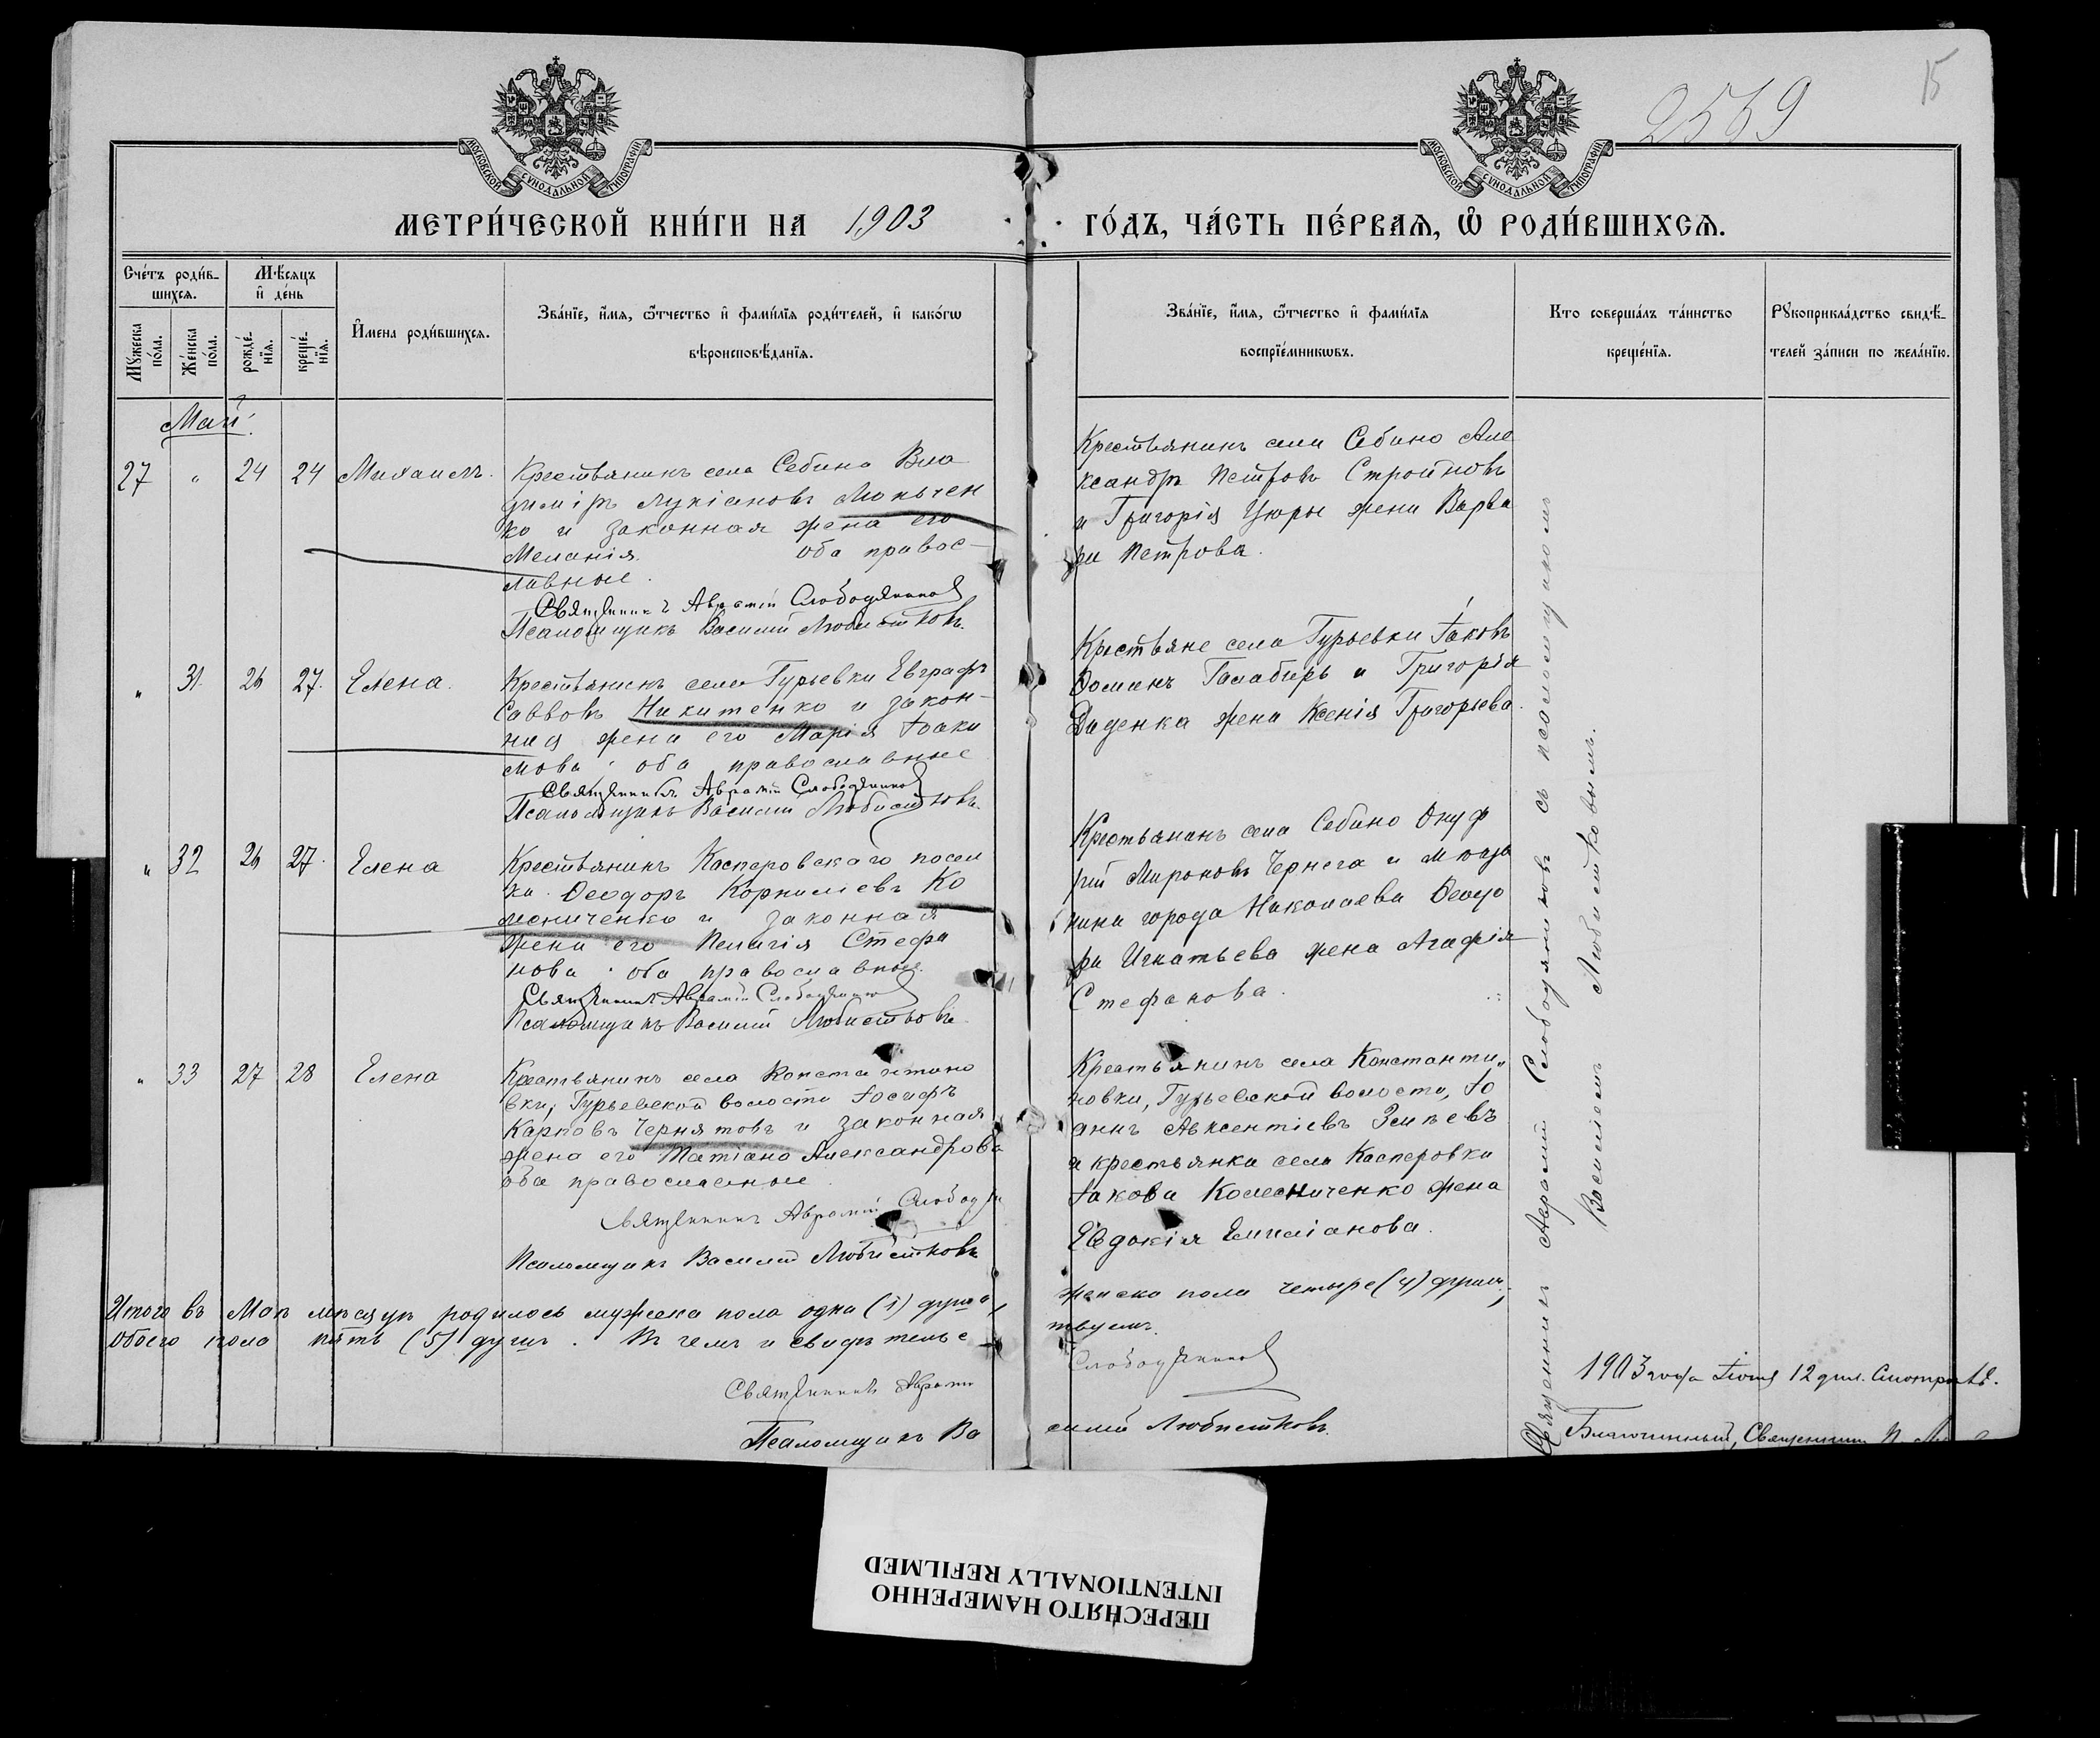 15
2569
МОСКОВСКОЙ СѴНОДАЛЬНОЙ ТИПОГРАФІИ
МОСКОВСКОЙ СѴНОДАЛЬНОЙ ТИПОГРАФІИ
МЕТРИ́ЧЕСКОЙ КНИ́ГИ НА 1903
ГО́ДЪ, ЧА́СТЬ ПЕ́РВАѦ, Ѡ҆ РОДИ́ВШИХСѦ.
Сче́тъ роди́в-
шихсѧ.
Мѣ́сѧцъ
и҆ де́нь
Мꙋ́жеска
по́ла.
Же́нска
по́ла.
рожде́-
нїѧ.
креще́-
нїѧ.
И҆мена роди́вшихсѧ.
Зва́нїе, и҆́мѧ, ѻ҆́тчество и҆ фами́лїѧ роди́телей, и҆ како́гѡ
вѣроисповѣ́данїѧ.
Зва́нїе, и҆́мѧ, ѻ҆́тчество и҆ фами́лїѧ
воспрїе́мникѡвъ.
Кто соверша́лъ та́инство
креще́нїѧ.
Рꙋкоприкла́дство свидѣ́-
телей за́писи по жела́нїю.
Май.
27 " 24 24 Михаилъ.
Крестьянинъ села Себино Вла
диміръ Лукіановъ
ко и законная жена его
Меланія. оба правос-
лавные.
Священникъ Аврамій Слободяников
Псаломщикъ Василій Любистковъ.
Крестьянинъ села Себино Але
ксандръ Петровъ Стройновъ
и Григорія Цюры жена Варва
ра Петрова.
" 31. 26 27. Елена.
Крестьянинъ села Гурьевки Евграфъ
Саввовъ Никитенко и закон-
ная жена его Марія Іоаки
мова. оба православные
Священникъ Аврамій Слободяников
Псаломщикъ Василій Любистковъ.
Крестьяне села Гурьевки Іаковъ
Ѳоминъ и Григорія
Диденка жена Ксенія Григорьева.
" 32 26 27. Елена
Крестьянинъ Касперовскаго посел
ка Ѳеодоръ Корниліевъ Ко
лесниченко и законная
жена его Пелагія Стефа
нова. оба православные.
Священникъ Аврамій Слободяников
Псаломщикъ Василій Любистковъ.
Крестьянинъ села Себино Онуф
рій Мироновъ Чернега и мѣща
нина города Николаева Ѳеодо
ра Игнатьева жена Агафія
Стефанова.
" 33 27 28 Елена
Крестьянинъ села Константино
вки, Гурьевской волости Іосифъ
Карповъ Чернятовъ и законная
жена его Татіана Александрова
оба православные.
Священникъ Аврамій Слободя
Псаломщикъ Василій Любистковъ
Крестьянинъ села Константи"
новки, Гурьевской волости, Іо
аннъ Авксентіевъ
и крестьянка села Касперовки
Іакова Колесниченко жена
Евдокія Емиліанова.
Итого въ Маѣ мѣсяцѣ родилось мужеска пола одна (1) душа, женска пола четыре (4) души,
обоего пола пять (5) душъ. Въ чемъ и свидѣтельствуемъ.
Священникъ Аврамій Слободяников
Псаломщикъ Василій Любистковъ.
Священникъ Аврамій Слободяниковъ съ псаломщикомъ
Василіемъ Любистковымъ.
1903 года Іюня 12 дня. Смотрѣлъ.
Благочинный, Священникъ
ПЕРЕСНЯТО НАМЕРЕННО
INTENTIONALLY REFILMED